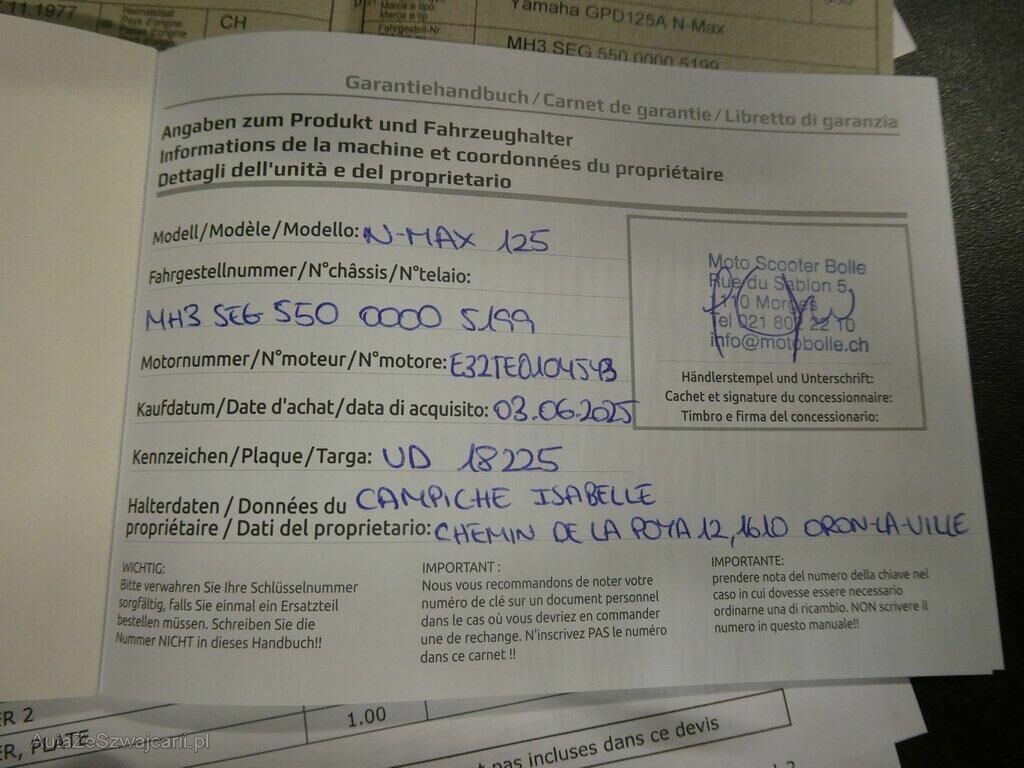 .11.1977
Heimatstaat
Pays d'origine
CH
Marca e tipo
Marca e tip
Fahrgestell-Nr.
Yamaha GPD125A N-Max
MH3 SEG 550 0000 5199
Garantiehandbuch / Carnet de garantie / Libretto di garanzia
Angaben zum Produkt und Fahrzeughalter
Informations de la machine et coordonnées du propriétaire
Dettagli dell'unità e del proprietario
Modell/Modèle/Modello: N-MAX 125
Fahrgestellnummer/N°châssis/N°telaio:
MH3 SEG 550 0000 5199
Motornummer/N°moteur/N°motore: E32TE0104543
Kaufdatum/Date d'achat/data di acquisito: 03.06.2025
Kennzeichen/Plaque/Targa: UD 18225
Halterdaten / Données du CAMPICHE ISABELLE
propriétaire / Dati del proprietario: CHEMIN DE LA POYA 12, 1610 ORON-LA-VILLE
Moto Scooter Bolle
Rue du Sablon 5
1110 Morges
Tel 021 802 22 10
info@motobolle.ch
Händlerstempel und Unterschrift:
Cachet et signature du concessionnaire:
Timbro e firma del concessionario:
WICHTIG:
Bitte verwahren Sie Ihre Schlüsselnummer
sorgfältig, falls Sie einmal ein Ersatzteil
bestellen müssen. Schreiben Sie die
Nummer NICHT in dieses Handbuch!!
IMPORTANT :
Nous vous recommandons de noter votre
numéro de clé sur un document personnel
dans le cas où vous devriez en commander
une de rechange. N'inscrivez PAS le numéro
dans ce carnet !!
IMPORTANTE:
prendere nota del numero della chiave nel
caso in cui dovesse essere necessario
ordinarne una di ricambio. NON scrivere il
numero in questo manuale!!
ER 2
1.00
ER, PLATE
pas incluses dans ce devis
AutazeSzwajcarii.pl